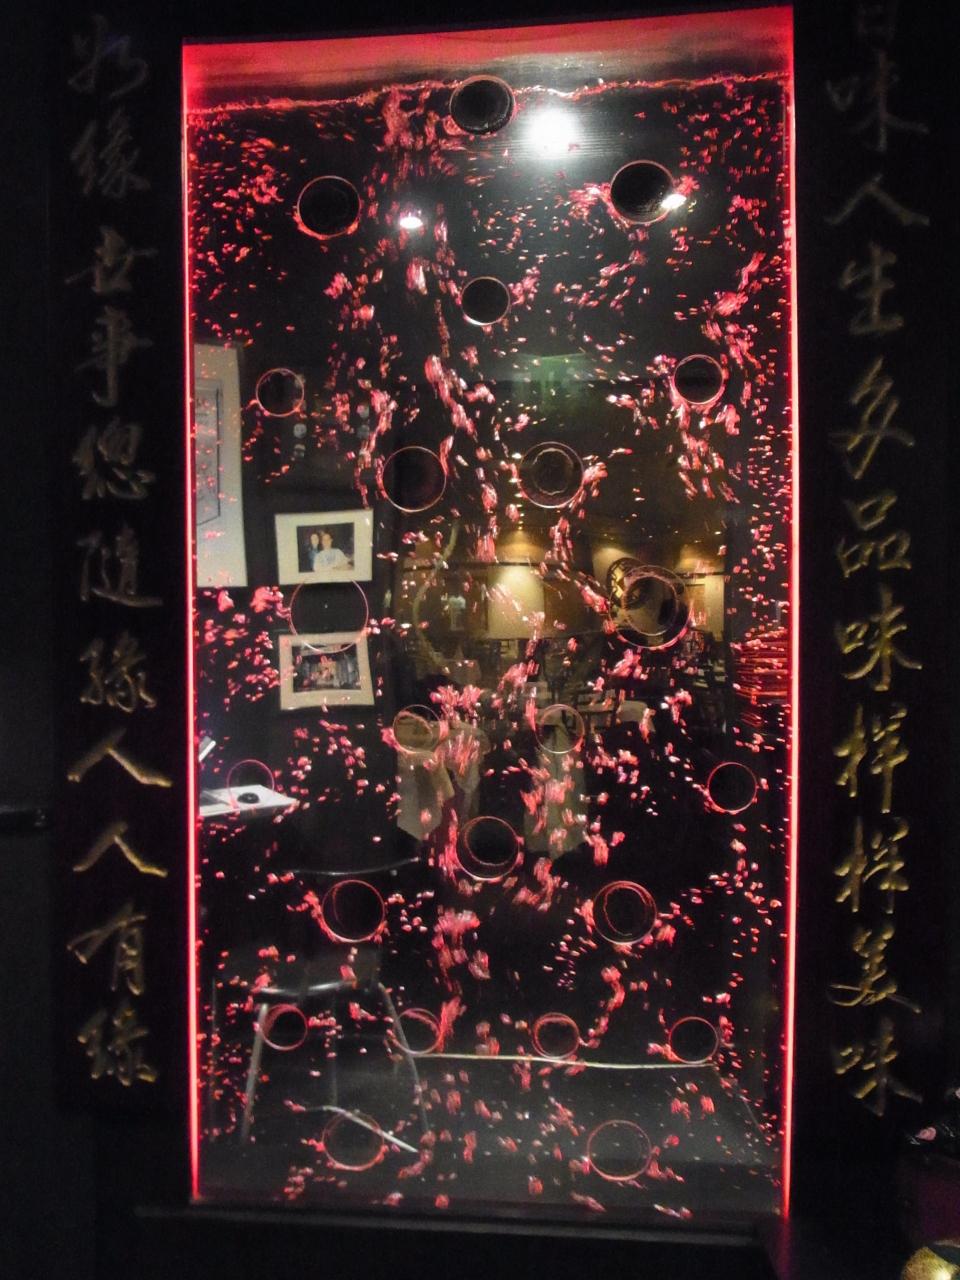 百味人生多品味样样美味
妙緣世事總隨緣人人有緣